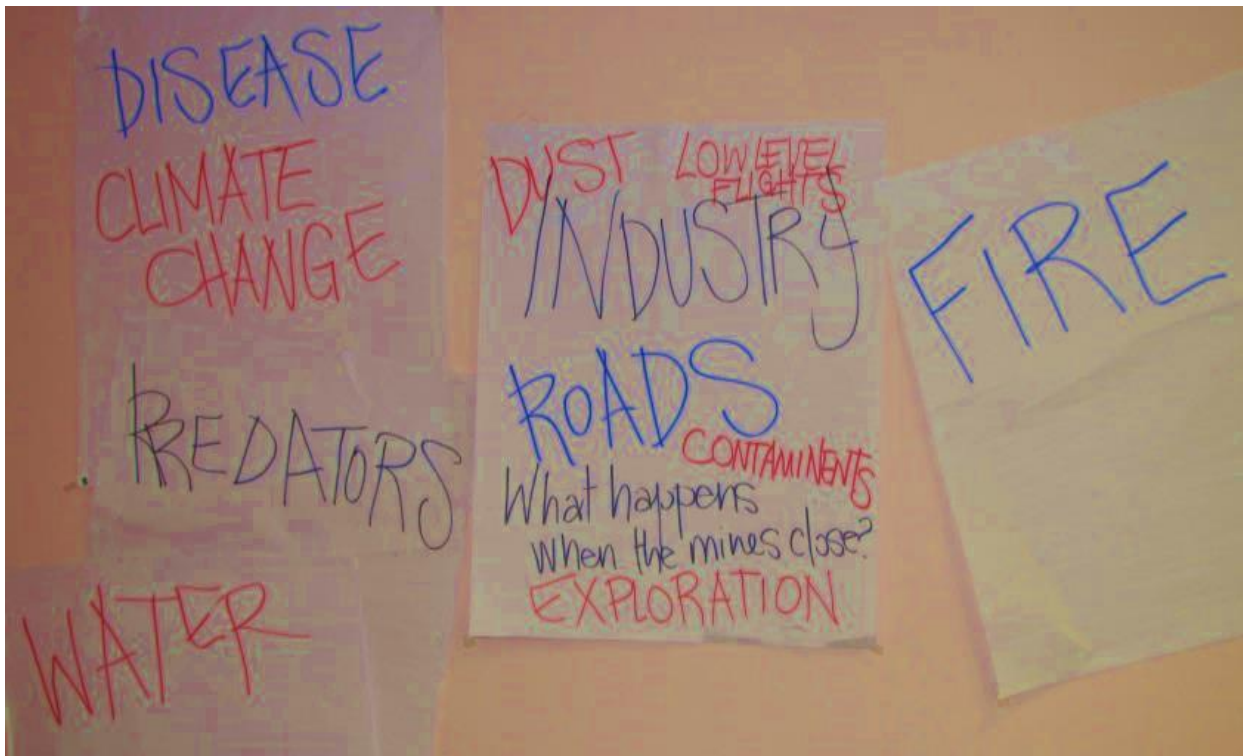 DISEASE
CLIMATE
CHANGE
PREDATORS
WATER
DUST
LOW LEVEL
FLIGHTS
INDUSTRY
ROADS
CONTAMINENTS
What happens
when the mines close?
EXPLORATION
FIRE